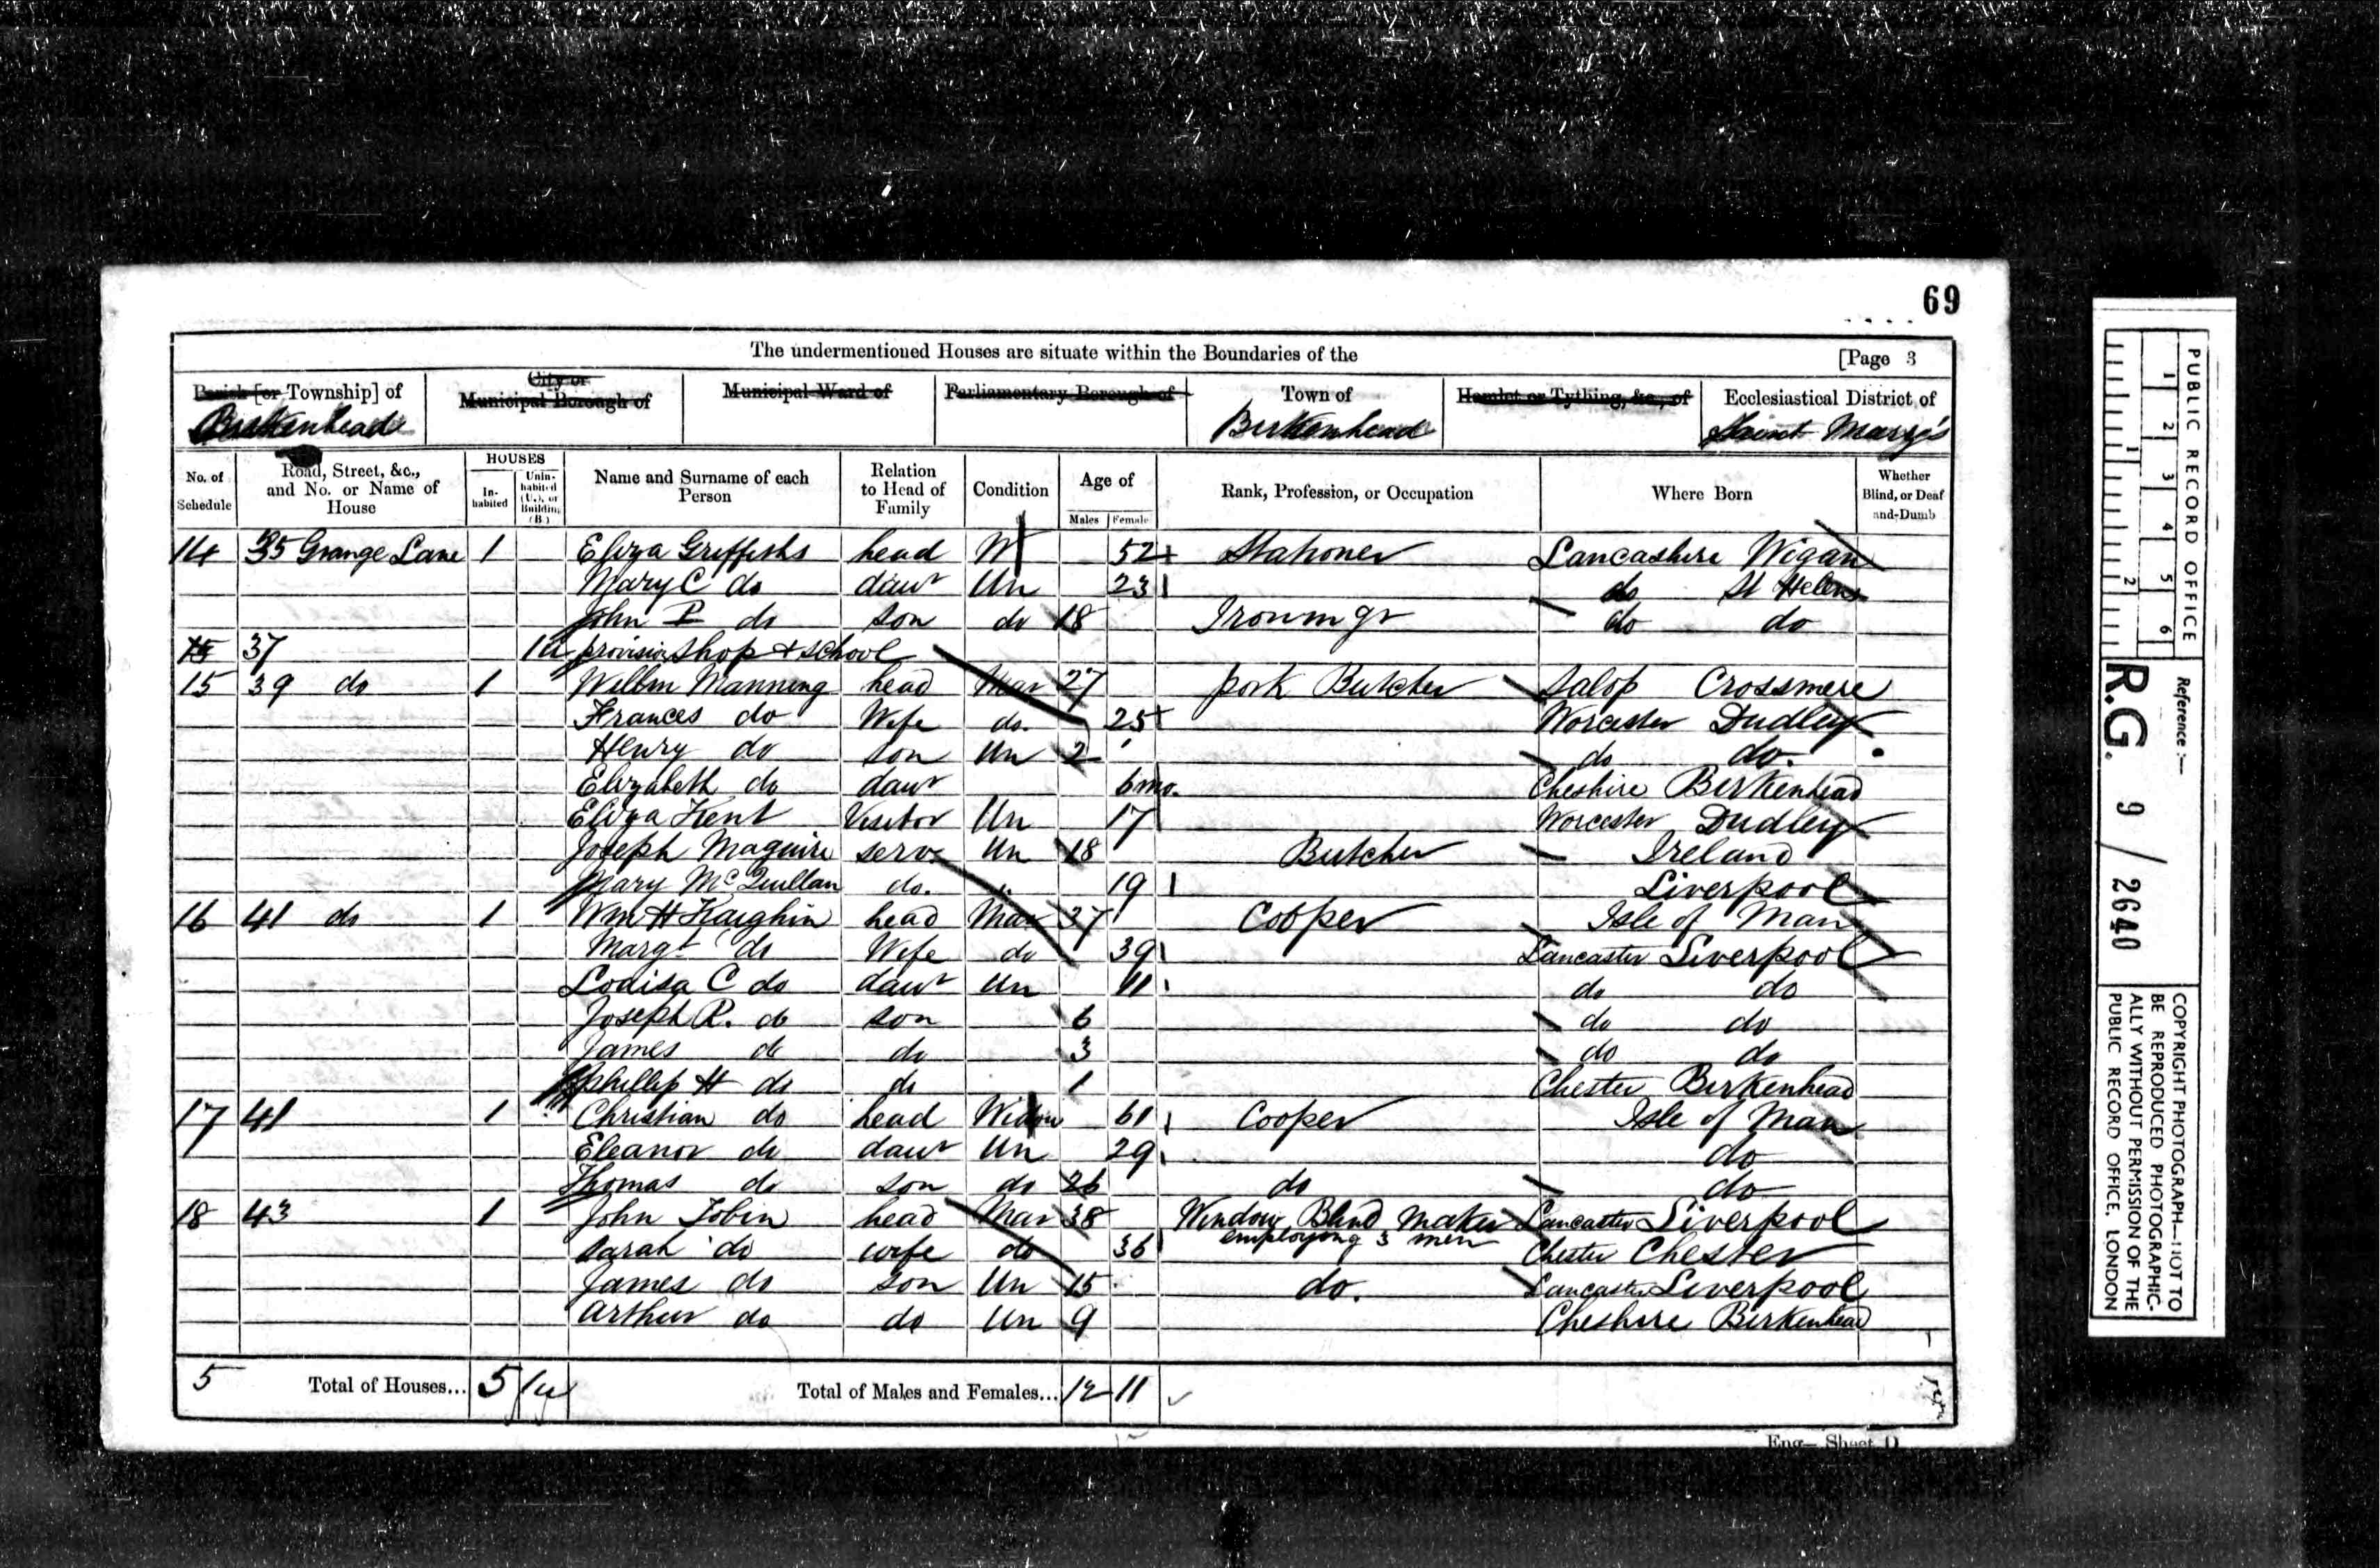 69
The undermentioned Houses are situate within the Boundaries of the [Page 3
Parish [or Township] of City or Municipal Borough of Municipal Ward of Parliamentary Borough of Town of Hamlet or Tything, &c., of Ecclesiastical District of
Birkenhead Birkenhead Saint Mary's
No. of Schedule Road, Street, &c., and No. or Name of House HOUSES Inhabited Uninhabited (U.), or Building (B.) Name and Surname of each Person Relation to Head of Family Condition Age of Males Females Rank, Profession, or Occupation Where Born Whether Blind, or Deaf and-Dumb
14 35 Grange Lane 1 Eliza Griffiths head W 52 Stationer Lancashire Wigan
Mary C do daur Un 23 do St Helens
John P do son do 18 Ironmgr do do
37 1u provision shop & school
15 39 do 1 Willm Manning head Mar 27 pork Butcher Salop Crossmere
Frances do Wife do. 25 Worcester Dudley
Henry do son Un 2 do do.
Elizabeth do daur 6mo. Cheshire Birkenhead
Eliza Kent Visitor Un 17 Worcester Dudley
Joseph Maguire serv Un 18 Butcher Ireland
Mary McQuillan do. " 19 Liverpool
16 41 do 1 Wm H Kaighin head Mar 37 Cooper Isle of Man
Margt do Wife do 39 Lancaster Liverpool
Lodisa C do daur Un 11 do do
Joseph R. do son 6 do do
James do do 3 do do
Phillip H do do 1 Chester Birkenhead
17 41 1 Christian do head Widow 61 Cooper Isle of Man
Eleanor do daur Un 29 do
Thomas do son do 26 do do
18 43 1 John Tobin head Mar 38 Window Blind Maker Lancaster Liverpool
employing 3 men
Sarah do wife do 36 Chester Chester
James do son Un 15 do. Lancaster Liverpool
Arthur do do Un 9 Cheshire Birkenhead
5 Total of Houses... 5 1u Total of Males and Females... 12 11
Eng—Sheet D
PUBLIC RECORD OFFICE
1 2 3 4 5 6
1 2
Reference :—
R.G. 9/2640
COPYRIGHT PHOTOGRAPH—NOT TO
BE REPRODUCED PHOTOGRAPHIC-
ALLY WITHOUT PERMISSION OF THE
PUBLIC RECORD OFFICE, LONDON